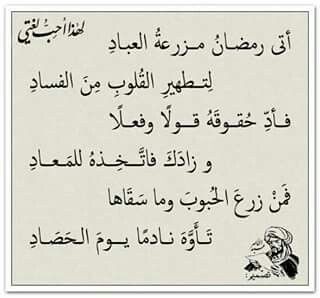 لهذا أحب لغتي
أتى رمضانُ مـزرعةُ العبـادِ
لِتـطهيرِ القُلوبِ مِنَ الفسادِ
فـأدِّ حُقـوقَهُ قـولًا وفعلًا
و زادَكَ فاتَّـخِـذهُ للمَـعـادِ
فَمَنْ زرعَ الحُبوبَ وما سَقَاها
تَـأوَّهَ نـادمًا يـومَ الـحَصَـادِ